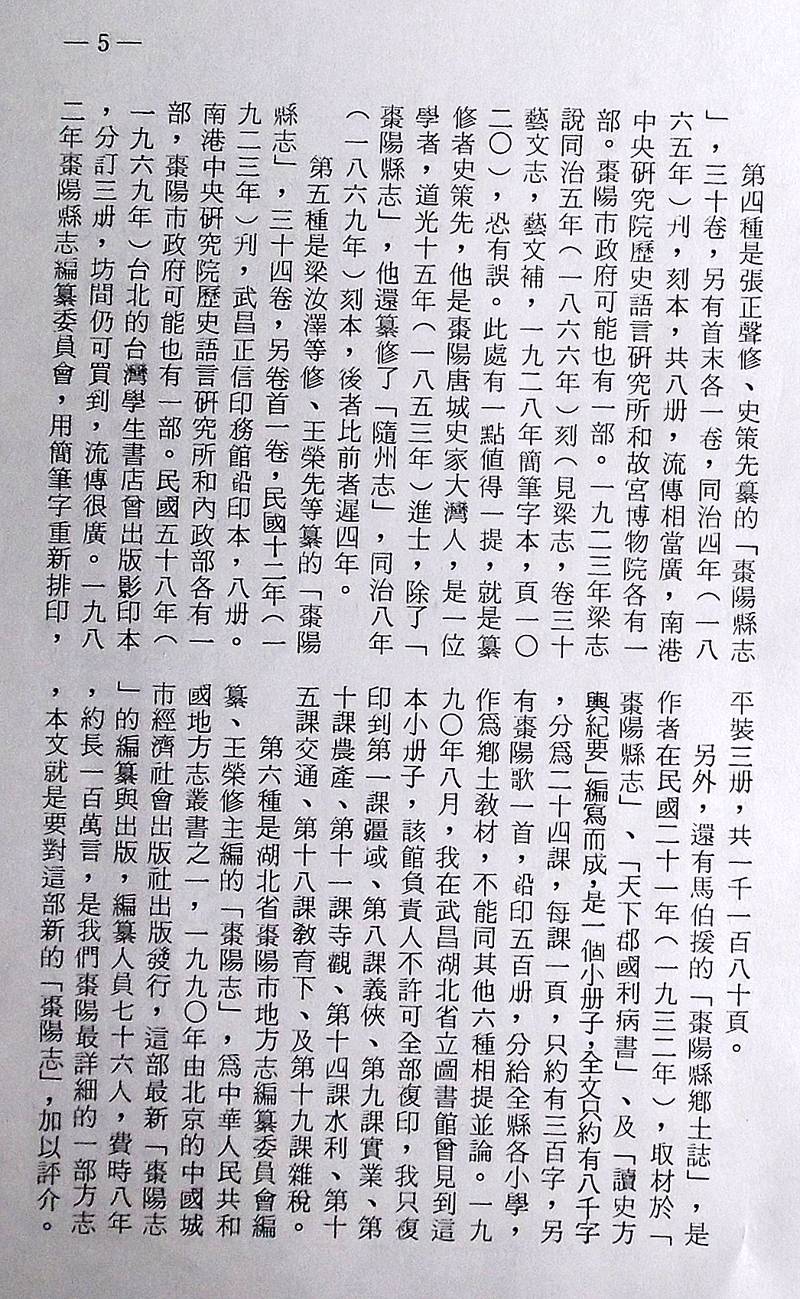 —5—
第四種是張正聲修、史策先纂的「棗陽縣志
」，三十卷，另有首末各一卷，同治四年（一八
六五年）刋，刻本，共八册，流傳相當廣，南港
中央研究院歷史語言研究所和故宮博物院各有一
部。棗陽市政府可能也有一部。一九二三年梁志
說同治五年（一八六六年）刻（見梁志，卷三十
藝文志，藝文補，一九二八年簡筆字本，頁一〇
二〇），恐有誤。此處有一點值得一提，就是纂
修者史策先，他是棗陽唐城史家大灣人，是一位
學者，道光十五年（一八五三年）進士，除了「
棗陽縣志」，他還纂修了「隨州志」，同治八年
（一八六九年）刻本，後者比前者遲四年。
第五種是梁汝澤等修、王榮先等纂的「棗陽
縣志」，三十四卷，另卷首一卷，民國十二年（一
九二三年）刋，武昌正信印務館鉛印本，八册。
南港中央研究院歷史語言研究所和內政部各有一
部，棗陽市政府可能也有一部。民國五十八年（
一九六九年）台北的台灣學生書店曾出版影印本
，分訂三册，坊間仍可買到，流傳很廣。一九八
二年棗陽縣志編纂委員會，用簡筆字重新排印，
平裝三册，共一千一百八十頁。
另外，還有馬伯援的「棗陽縣鄉土誌」，是
作者在民國二十一年（一九三二年），取材於「
棗陽縣志」、「天下郡國利病書」、及「讀史方
輿紀要」編寫而成，是一個小册子，全文只約有八千字
，分爲二十四課，每課一頁，只約有三百字，另
有棗陽歌一首，鉛印五百册，分給全縣各小學，
作爲鄉土教材，不能同其他六種相提並論。一九
九〇年八月，我在武昌湖北省立圖書館曾見到這
本小册子，該館負責人不許可全部複印，我只複
印到第一課疆域、第八課義俠、第九課實業、第
十課農產、第十一課寺觀、第十四課水利、第十
五課交通、第十八課教育下、及第十九課雜稅。
第六種是湖北省棗陽市地方志編纂委員會編
纂、王榮修主編的「棗陽志」，爲中華人民共和
國地方志叢書之一，一九九〇年由北京的中國城
市經濟社會出版社出版發行，這部最新「棗陽志
」的編纂與出版，編纂人員七十六人，費時八年
，約長一百萬言，是我們棗陽最詳細的一部方志
，本文就是要對這部新的「棗陽志」，加以評介。